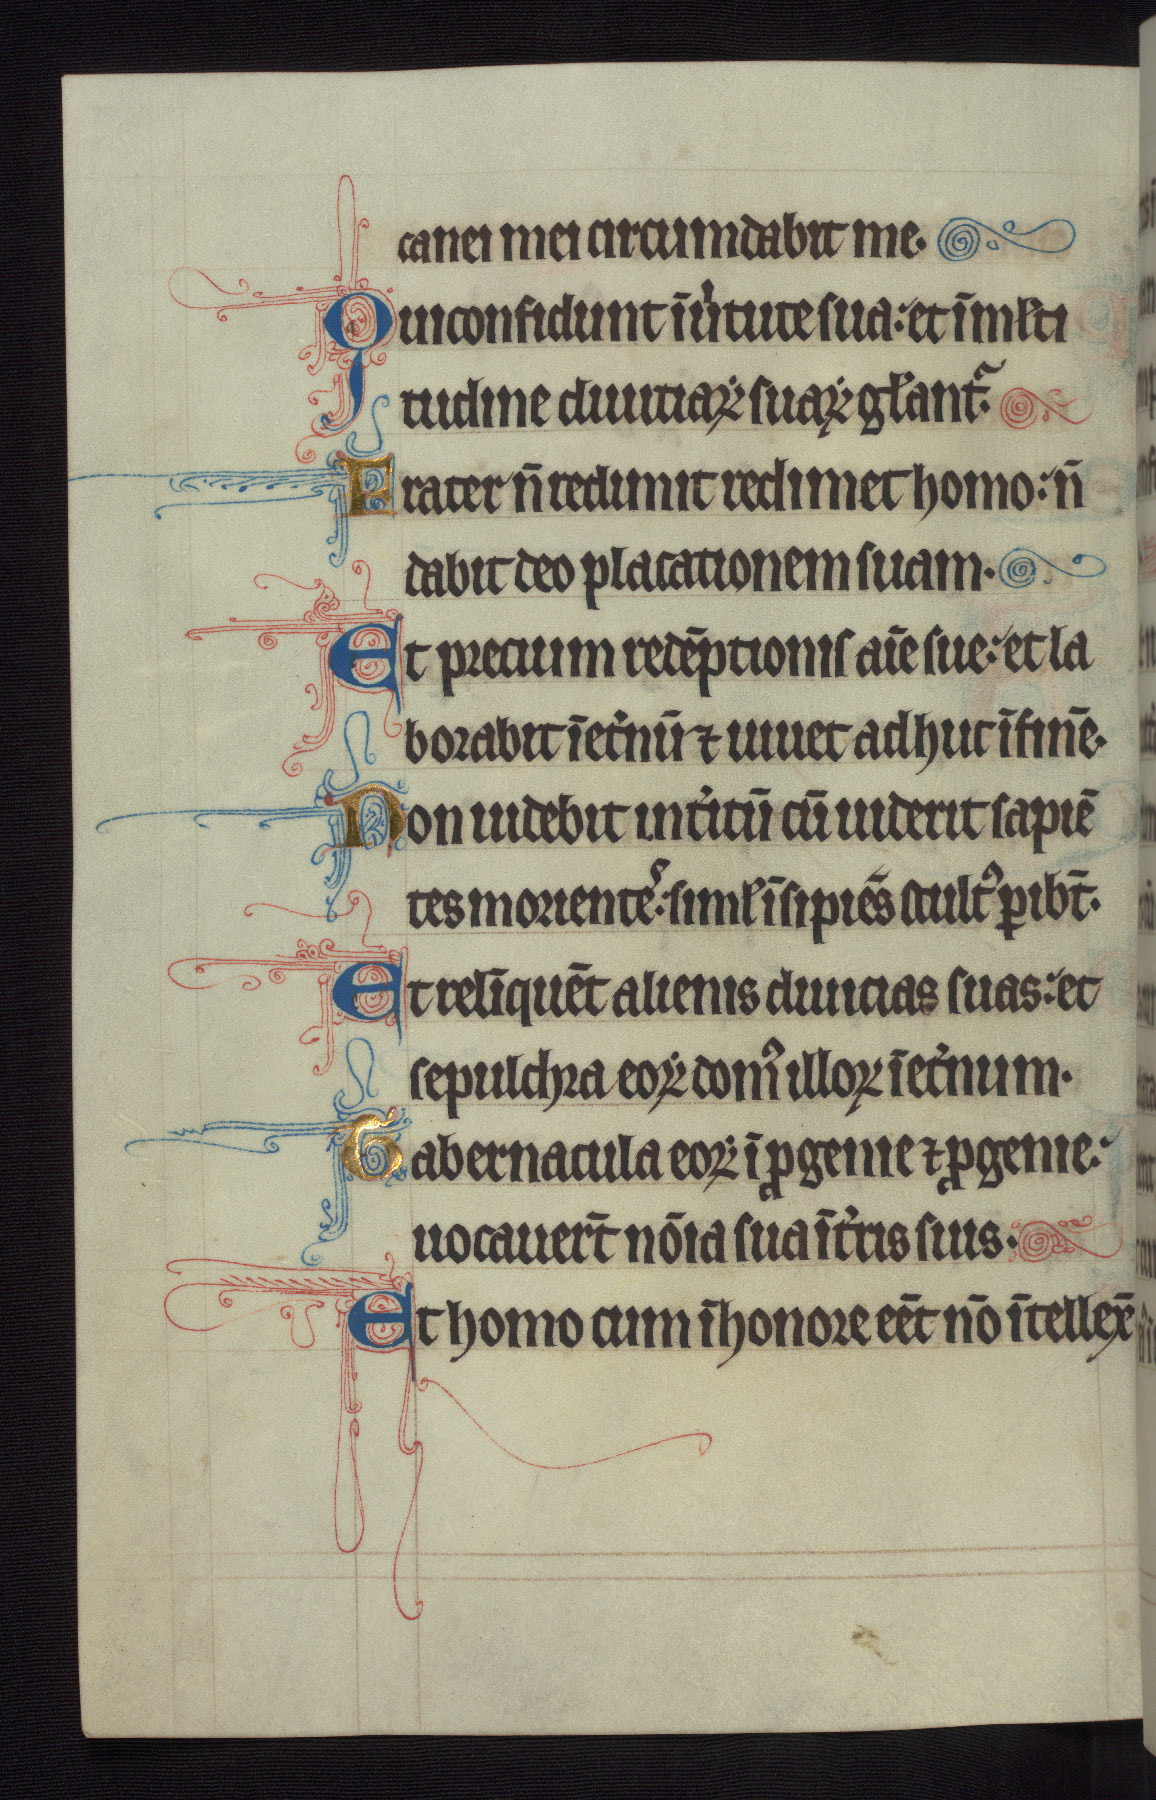 canei mei circumdabit me.
Qui confidunt ī ỽtute sua: et ī ml̄ti
tudine diuitiaꝝ suaꝝ gl̄ant̃.
Frater n̄ redimit redimet homo: n̄
dabit deo placationem suam.
Et precium redēptionis aīe sue: et la
borabit ī et̾nū ⁊ uiuet adhuc ī finē.
Non uidebit int̾itū cū uiderit sapiē
tes morientēˢ: siml̄ īsipiēs ⁊ stultꝰ ꝑibt̄.
Et relīquēt alienis diuicias suas: et
sepulchra eoꝝ domꝰ illoꝝ ī et̾num.
Tabernacula eoꝝ ī ꝓgenie ⁊ ꝓgenie:
uocauert̄ nōīa sua ī t̾ris suis.
Et homo cum ī honore eēt nō ītellex̄